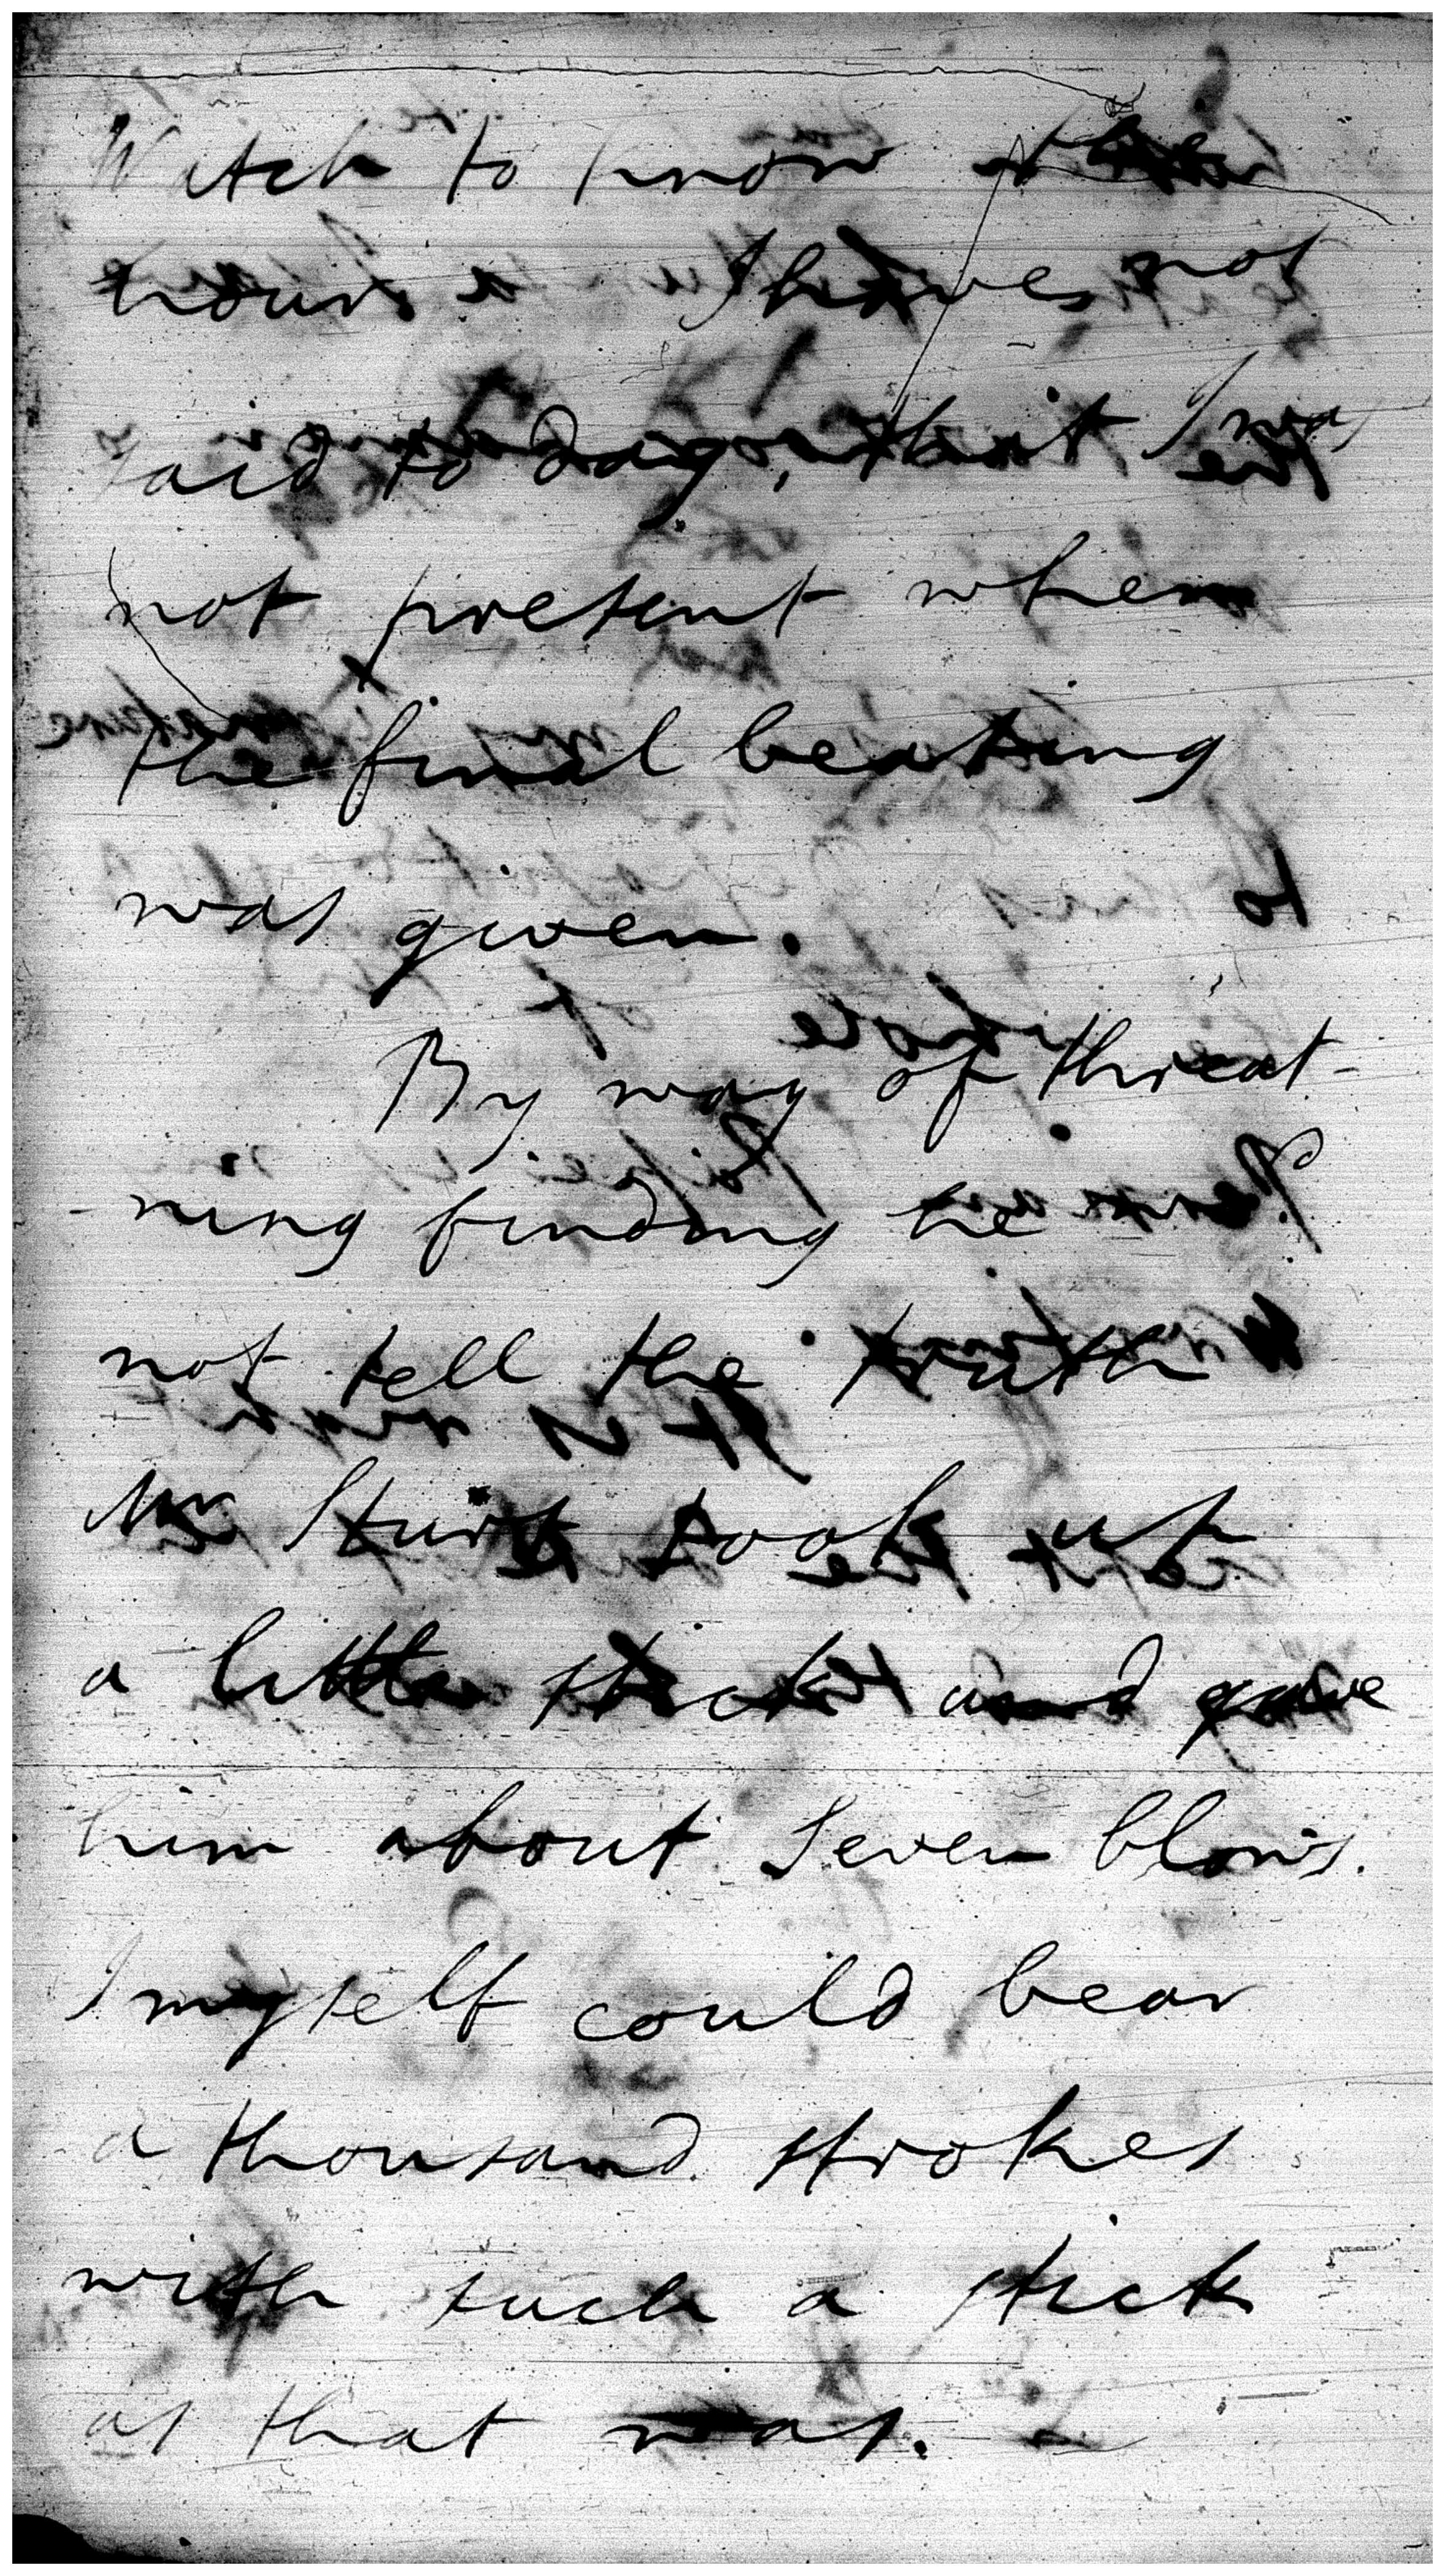 Watch to know the
hour. I have not
said to day, that I was
not present when
the final beating
was given.
By way of threat-
-ning finding he
not tell the truth
Mr Sturt took up
a little stick and gave
him about Seven blows.
I myself could bear
a thousand strokes
with such a stick
as that was.